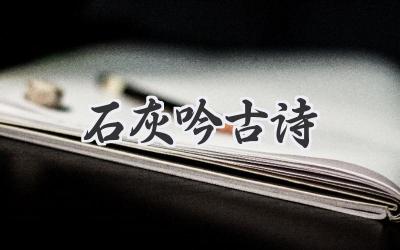 石灰吟古诗